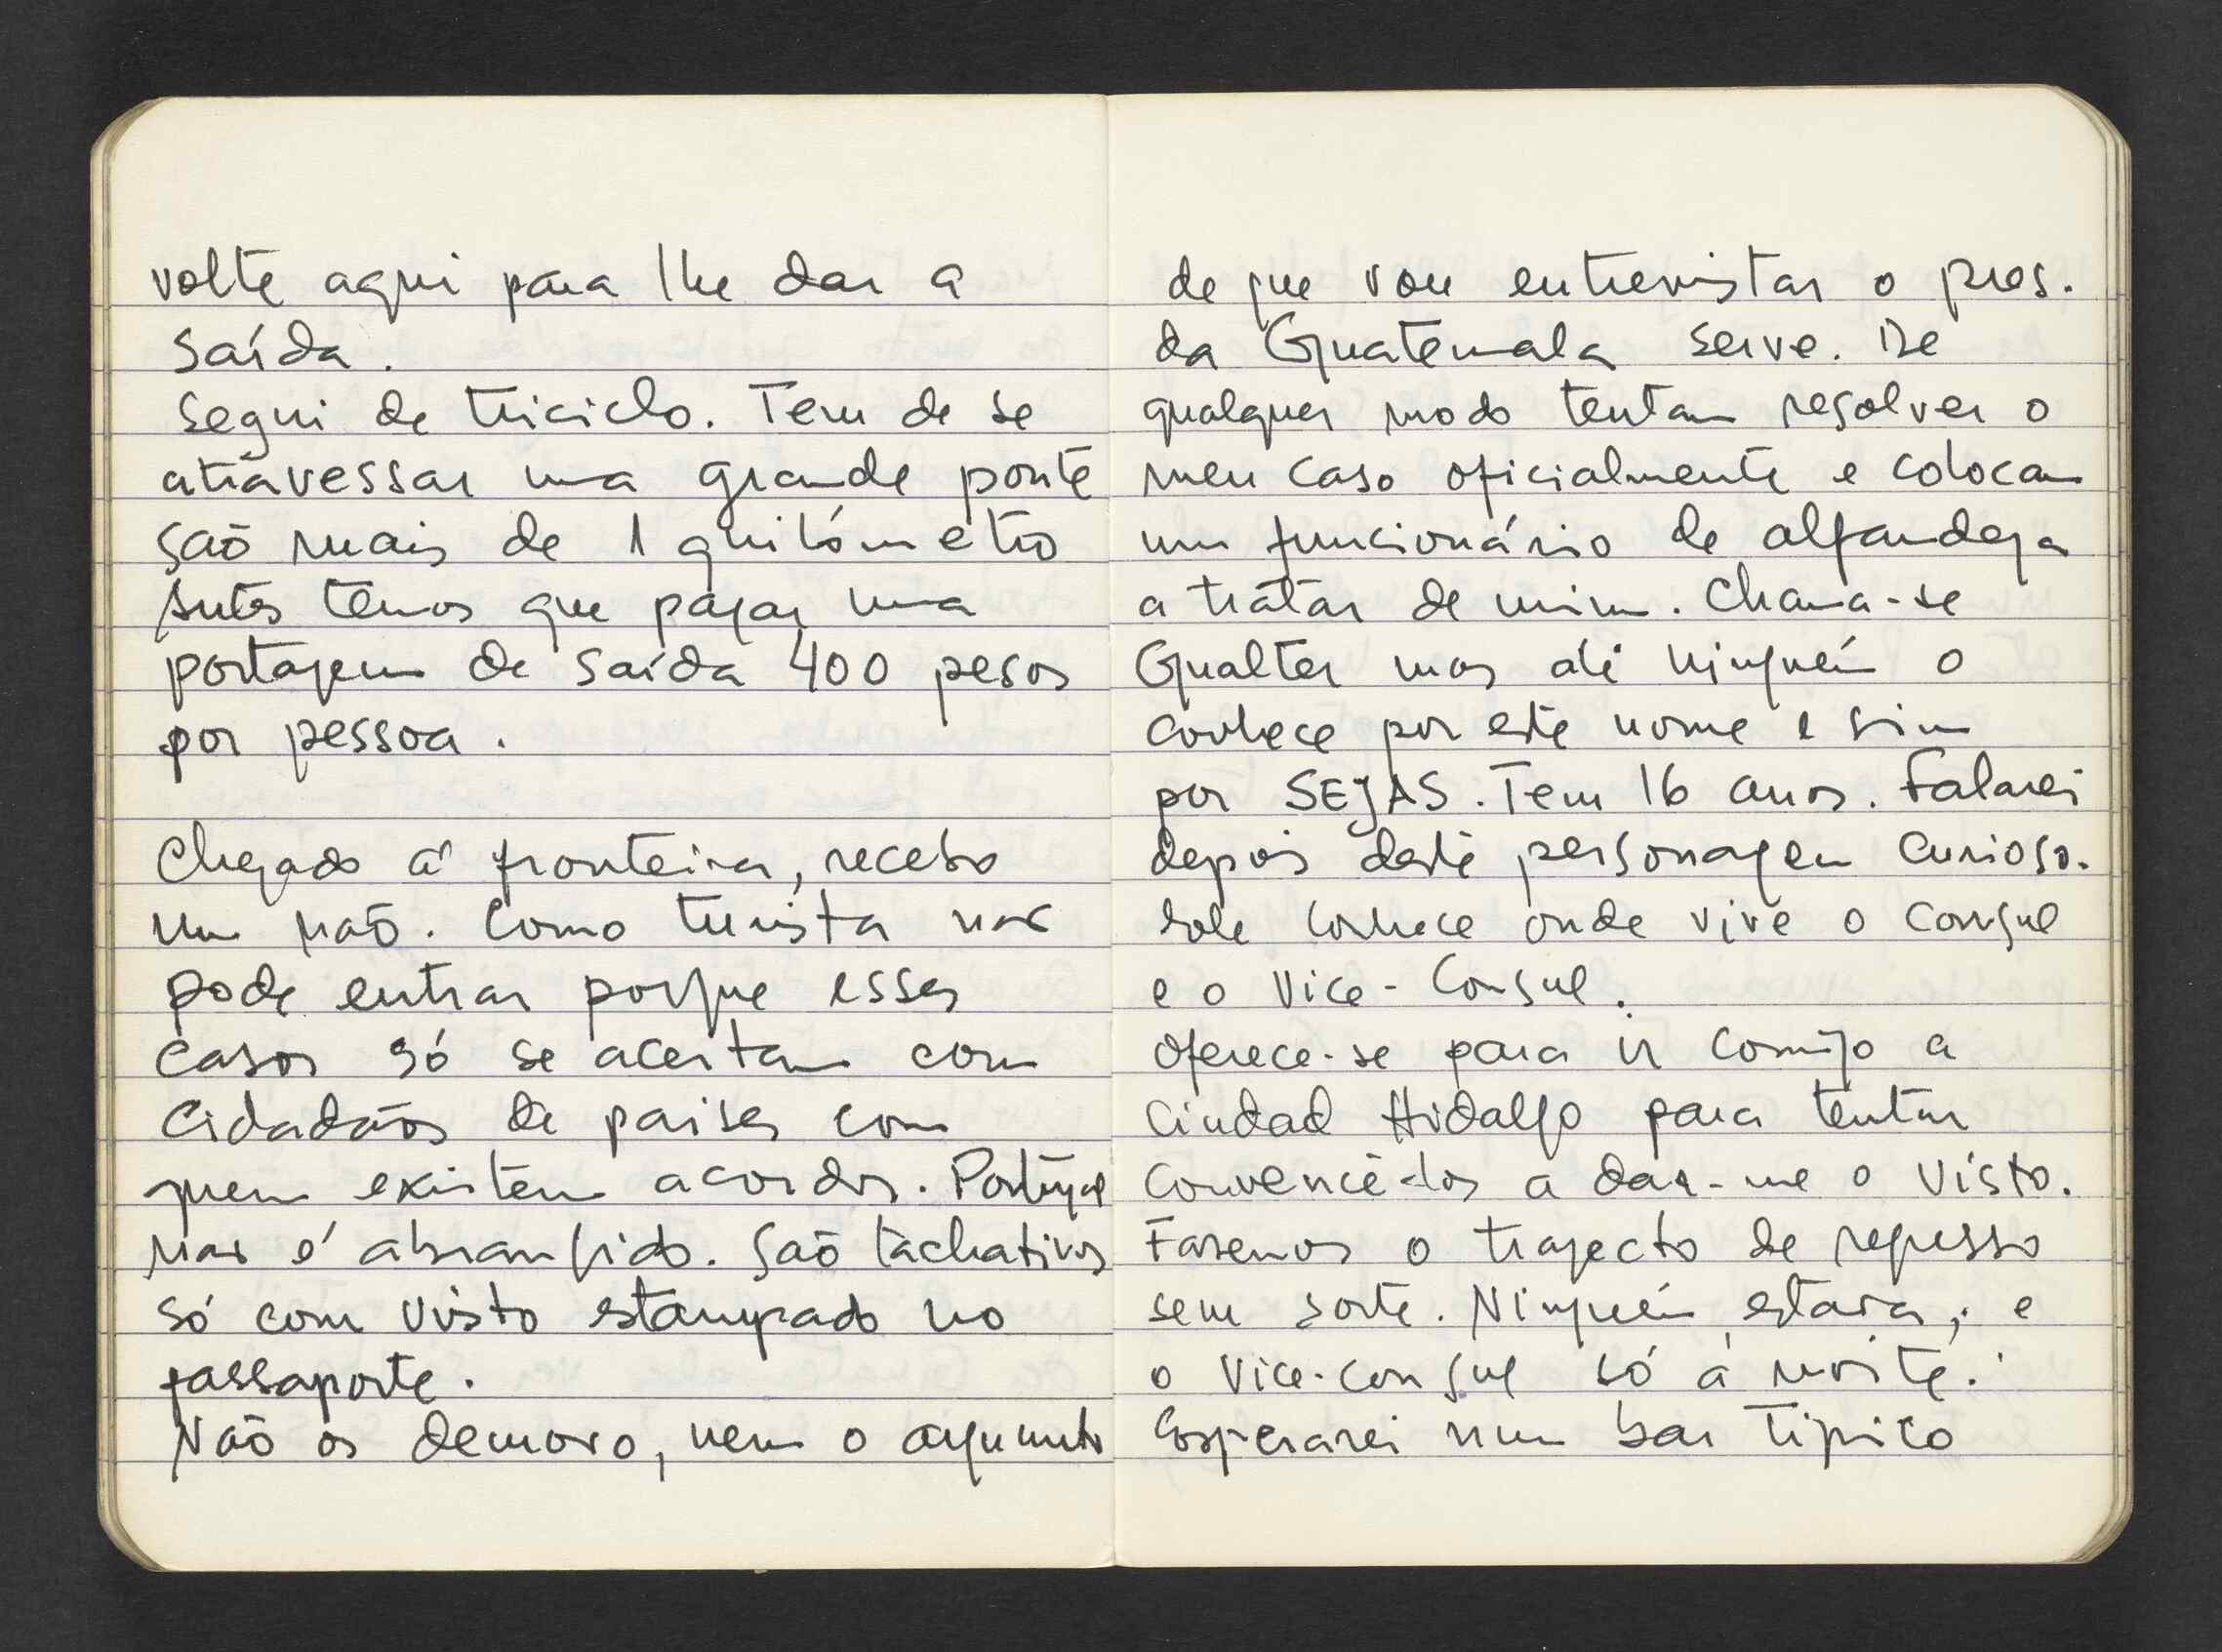 volte aqui para lhe dar a
saída.
segui de triciclo. Tem de se
atravessar uma grande ponte
são mais de 1 quilómetro
Antes temos que pagar uma
portagem de saída 400 pesos
por pessoa.
Chegado á fronteira, recebo
um não. Como turista não
pode entrar porque esses
casos só se acertam com
cidadãos de paises com
quem existem acordos. Portugal
não é abrangido. São tachativos
só com visto estampado no
passaporte.
Não os demovo, nem o argumento
de que vou entrevistar o pres.
da Guatemala serve. De
qualquer modo tentam resolver o
meu caso oficialmente e colocam
um funcionário de alfandega
a tratar de mim. Chama-se
Gualter mas ali ninguém o
conhece por este nome e sim
por SEJAS. Tem 16 anos. Falarei
depois deste personagem curioso.
conhece onde vive o consul
e o Vice-Consul.
oferece-se para ir comigo a
Ciudad Hidalgo para tentar
convencê-los a dar-me o visto.
Fazemos o trajecto de regresso
sem sorte. Ninguém estava, e
o Vice-consul só á noite.
Esperarei num bar tipico